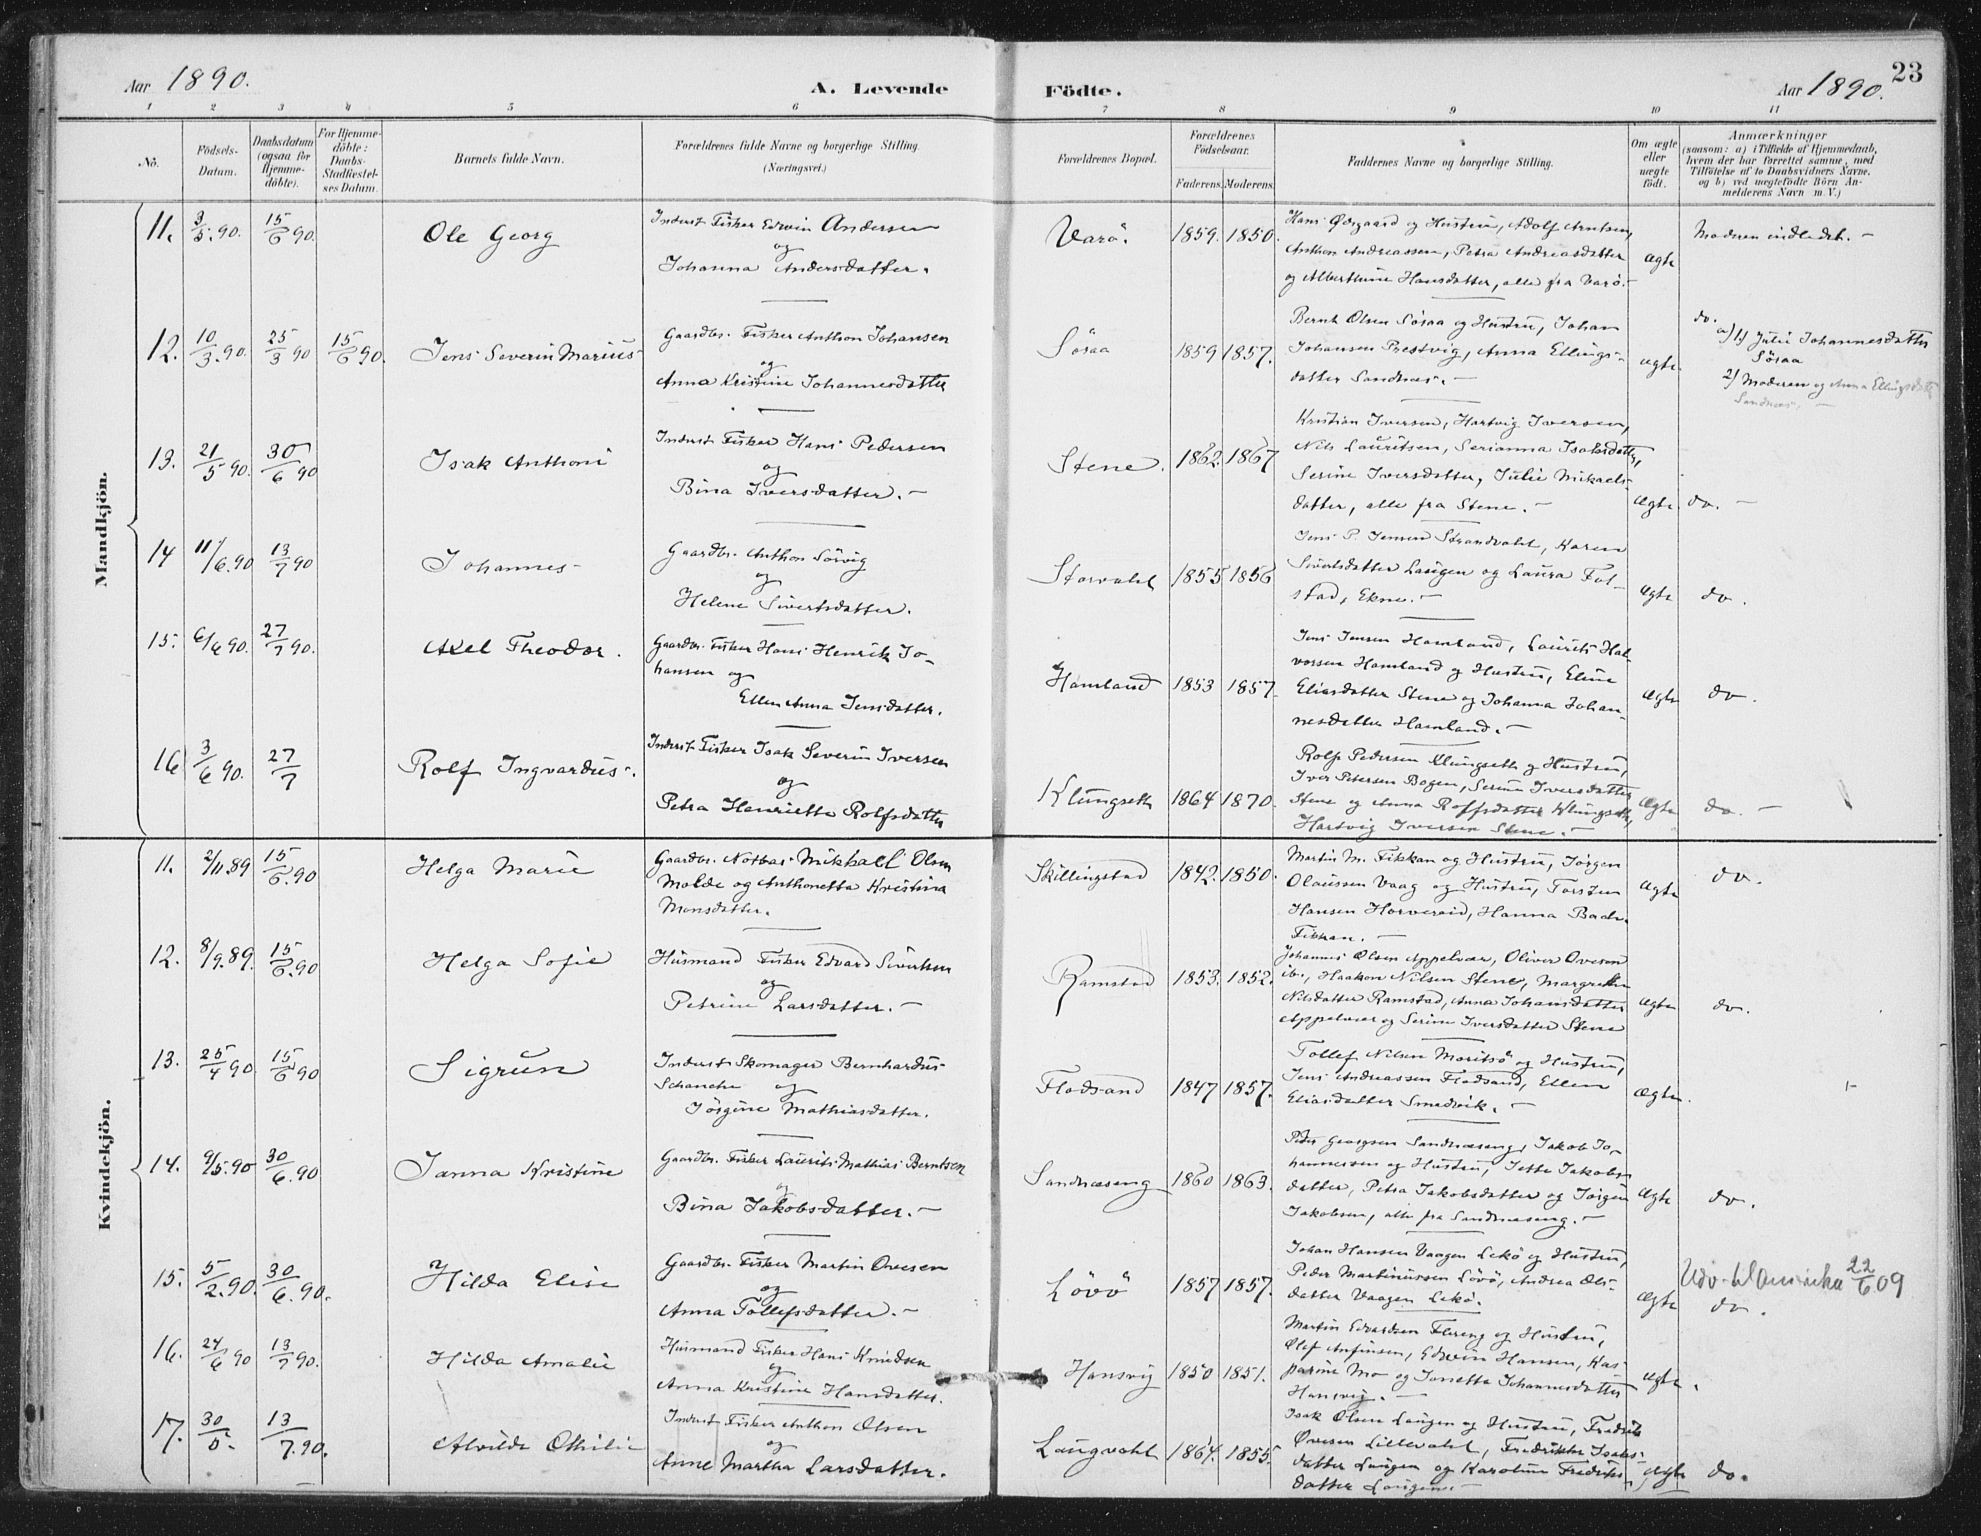 Aar 1890. A. Levende Födte. Aar 1890. 23
1 2 3 4 5 6 7 8 9 10 11
No. Födsels-Datum. Daabsdatum (ogsaa for Hjemmedöbte). For Hjemmedöbte: Daabs-Stadfæstelses Datum. Barnets fulde Navn. Forældrenes fulde Navne og borgerlige Stilling. (Næringsvei.) Forældrenes Bopæl. Forældrenes Födselsaar. Faderens. Moderens. Faddernes Navne og borgerlige Stilling. Om ægte eller uægte födt. Anmærkninger (saasom: a) i Tilfælde af Hjemmedaab, hvem der har forrettet samme, med Tilföielse af to Daabsvidners Navne, og b) ved uægtefödte Börn Anmelderens Navn m. V.)
Mandkjön.
11. 3/5.90. 15/6 90. Ole Georg Inderst Fisker Edvin Andersen og Johanna Andersdatter. Varö. 1859. 1850. Hans Ødegaard og Hustru, Adolf Arntsen, Anthon Andreassen, Petra Andreasdatter og Alberthine Hansdatter, alle fra Varö. ægte Moderen indledet.
12. 10/3.90. 25/3 90 15/6 90. Jens Severin Marius Gaardbr. Fisker Anthon Johansen og Anna Kristine Johannesdatter Sösaa 1859 1857. Bernt Olsen Sösaa og Hustru, Johan Johansen Prestvig, Anna Ellingsdatter Sandnæs. ægte do. a) 1) Julie Johannesdatter Sösaa 2) Moderen og Anna Ellingsdatter Sandnæs.
13. 21/5 90. 30/6 90 Isak Anthoni Inderst Fisker Hans Pedersen og Bina Iversdatter. Stene. 1862. 1867 Kristian Iversen, Hartvig Iversen, Nils Lauritsen, Serianna Isaksdatter, Serine Iversdatter, Julie Mikaelsdatter, alle fra Stene. ægte do.
14 11/6.90 13/7 90 Johannes Gaardbr. Anthon Sörvig og Helene Sivertsdatter. Storvahl 1855 1856 Jens P. Jensen Strandvahl, Karen Sivertsdatter Laugen og Laura Folstad, Ekne. ægte do.
15. 6/6 90. 27/7 90. Axel Theodor. Gaardbr. Fisker Hans Henrik Johansen og Ellen Anna Jensdatter. Hamland 1853 1857. Jens Jensen Hamland, Laurits Halvorsen Hamland og Hustru, Eline Eliasdatter Stene og Johanna Johannesdatter Hamland. ægte do.
16 3/6 90. 27/7 Rolf Ingvardus. Inderst Fisker Isak Severin Iversen og Petra Henriette Rolfsdatter Klungseth 1864 1870. Rolf Pedersen Klungseth og Hustru, Iver Petersen Bogen, Serine Iversdatter Stene og Anna Rolfsdatter Klungseth, Hartvig Iversen Stene. ægte do.
Kvindekjön.
11. 2/11.89 15/6.90 Helga Marie Gaardbr. Notbas Mikkael Olsen Molde og Anthonetta Kristina Monsdatter. Skillingstad 1842. 1850. Martin M. Fikkan og Hustru, Jörgen Olaussen Vaag og Hustru, Torsten Hansen Horvereid, Hanna Fikkan. ægte do.
12. 8/9.89. 15/6.90 Helga Sofie Husmand Fisker Edvard Sivertsen og Petrine Larsdatter. Ramstad 1853. 1852. Johannes Olsen Appelvær, Oliver Ovesen ib., Haakon Nilsen Stene, Margrethe Nilsdatter Ramstad, Anna Johansdatter Appelvær og Serine Iversdatter Stene ægte do.
13. 25/4 90. 15/6 90 Sigrun Inderst Skomager Bernhardus Schanche og Jörgine Mathiasdatter. Flodsand 1847 1857. Tollef Nilsen Moritsö og Hustru, Jens Andreassen Flodsand, Ellen Eliasdatter Smedvik. ægte.
14. 9/5.90 30/6.90 Janna Kristine Gaardbr. Fisker Laurits Mathias Berntsen og Bina Jakobsdatter. Sandnæseng 1860 1863. Peder Georgsen Sandnæseng, Jakob Johannessen og Hustru, Jette Jakobsdatter, Petra Jakobsdatter og Jörgen Jakobsen, alle fra Sandnæseng. ægte do.
15. 5/2.90. 30/6.90. Hilda Elise Gaardbr. Fisker Martin Ovesen og Anna Tollefsdatter. Lövö 1857 1857. Johan Hansen Vaagen Lekö og Hustru, Peder Martinussen Lövö, Andrea Olsdatter Vaagen Lekö. ægte Udv. t. Amerika 22/6 09 do.
16. 24/6 90 13/7 90. Hilda Amalie Husmand Fisker Hans Knudsen og Anna Kristine Hansdatter. Hansvig 1850 1851. Martin Edvardsen Flereng og Hustru, Olef Anfinsen, Edvin Hansen, Kasparine Mo og Jonetta Johannesdatter Hansvig. ægte.
17. 30/5. 13/7.90. Alvilde Othilie Inderst Fisker Anthon Olsen og Anne Martha Larsdatter. Langvahl 1864. 1855. Isak Olsen Laugen og Hustru, Fredrik Ovesen Lillevahl, Fredrikke Isaksdatter Laugen og Karoline Fredriksdatter Laugen. ægte do.